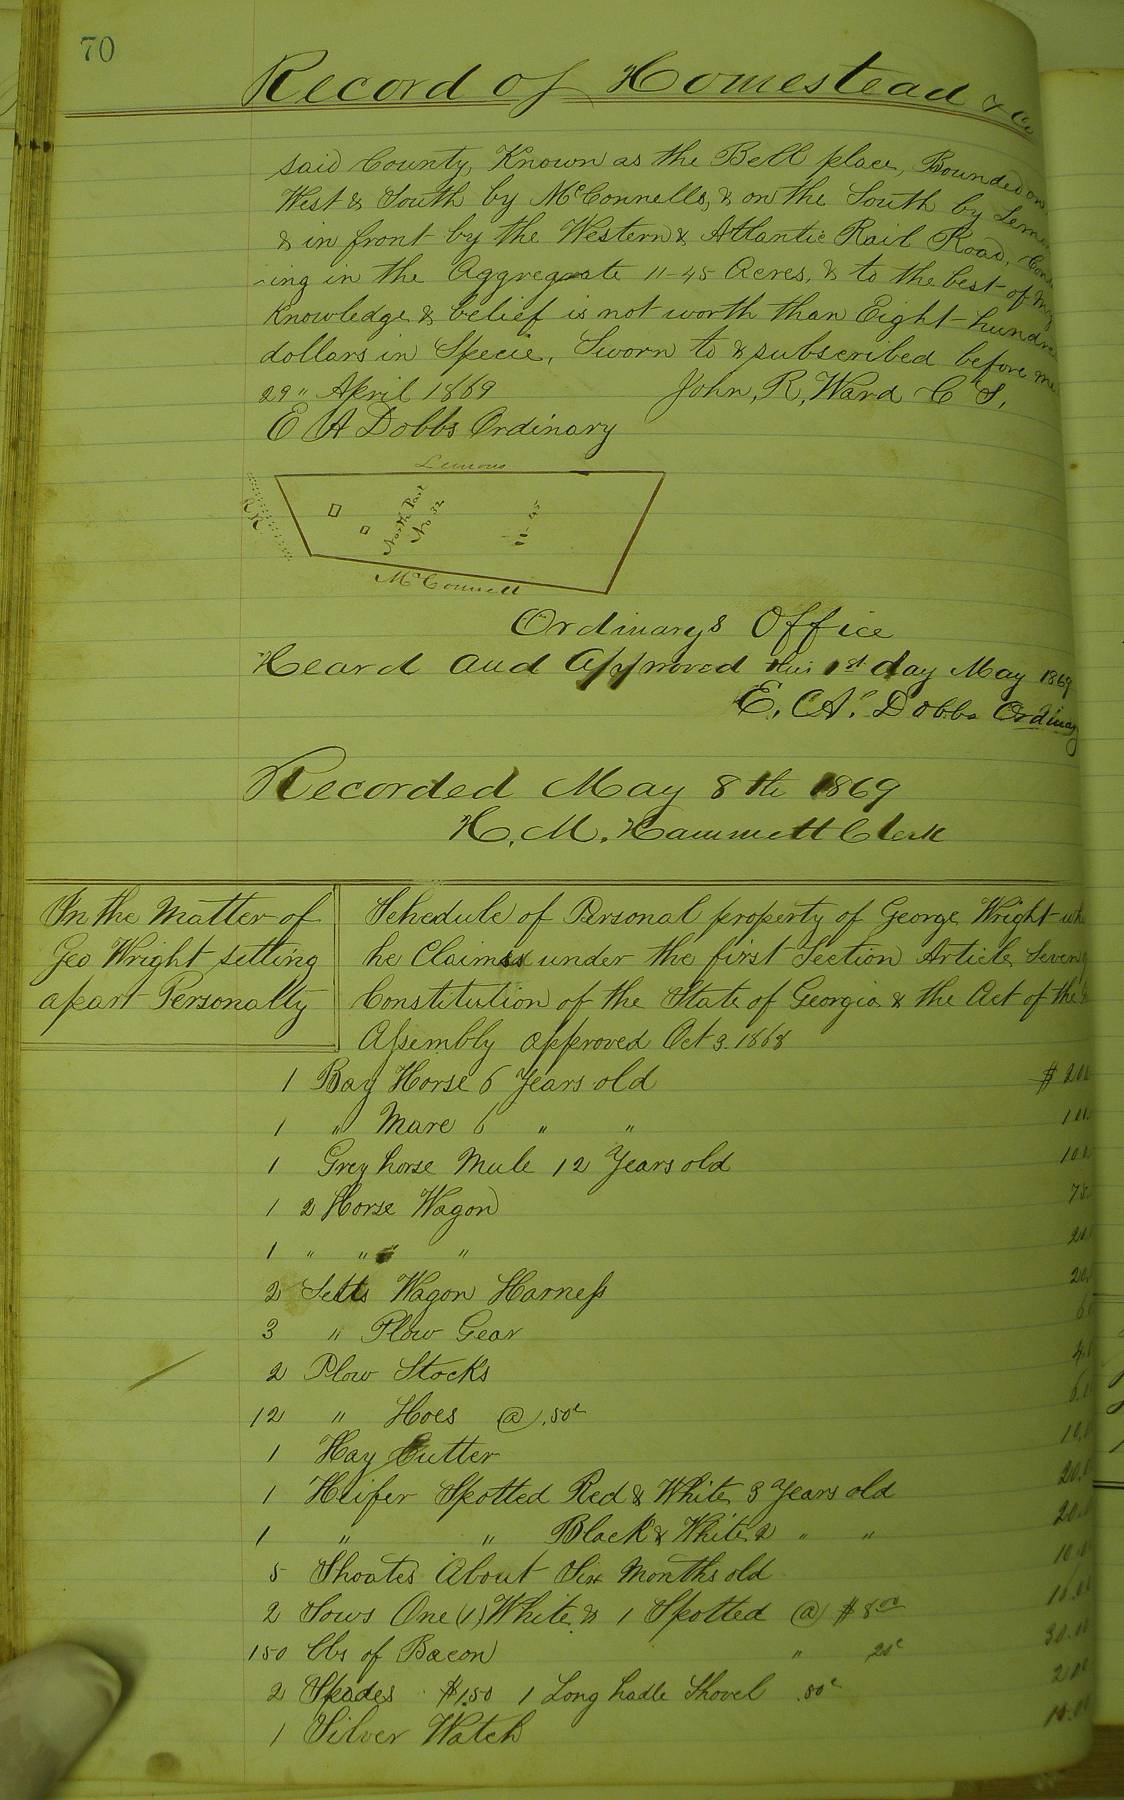 70
Record of Homestead & Co
said County, Known as the Bell place, Bounded on
West & South by McConnells, & on the South by
& in front by the Western & Atlantic Rail Road,
-ing in the Aggregate 11-45 Acres, & to the best of my
Knowledge & belief is not worth than Eight hundre
dollars in Specie, Sworn to & subscribed before me
29 " April 1869 John, R, Ward C S,
E A Dobbs Ordinary
Lemons
RR
North Part
No 32
11-45
McConnell
Ordinarys Office
Heard and Approved this 1st day May 1869
E. A. Dobbs Ordinary
Recorded May 8th 1869
H. M. Hammett Clerk
In the Matter of
Geo Wright setting
apart Personalty
Schedule of Personal property of George Wright
he Claims under the first Section Article Seven
Constitution of the State of Georgia & the Act of the
Assembly approved Oct 3. 1868
1 Bay Horse 6 Years old
1 " Mare 6 " "
1 Grey horse Mule 12 Years old
1 2 Horse Wagon 75
1 " " "
2 Setts Wagon Harness 20.
3 " Plow Gear
2 Plow Stocks
12 " Hoes @ .50c
1 Hay Cutter 10.
1 Heifer Spotted Red & White 3 Years old 20.
1 " " Black & White 2 " " 20.
5 Shoates About Six Months old 10.
2 Sows One (1) White & 1 Spotted @ $8.00 16.00
150 lbs of Bacon " 20c 30.00
2 Spades $1.50 1 Long hadle Shovel .50c 2.00
1 Silver Watch